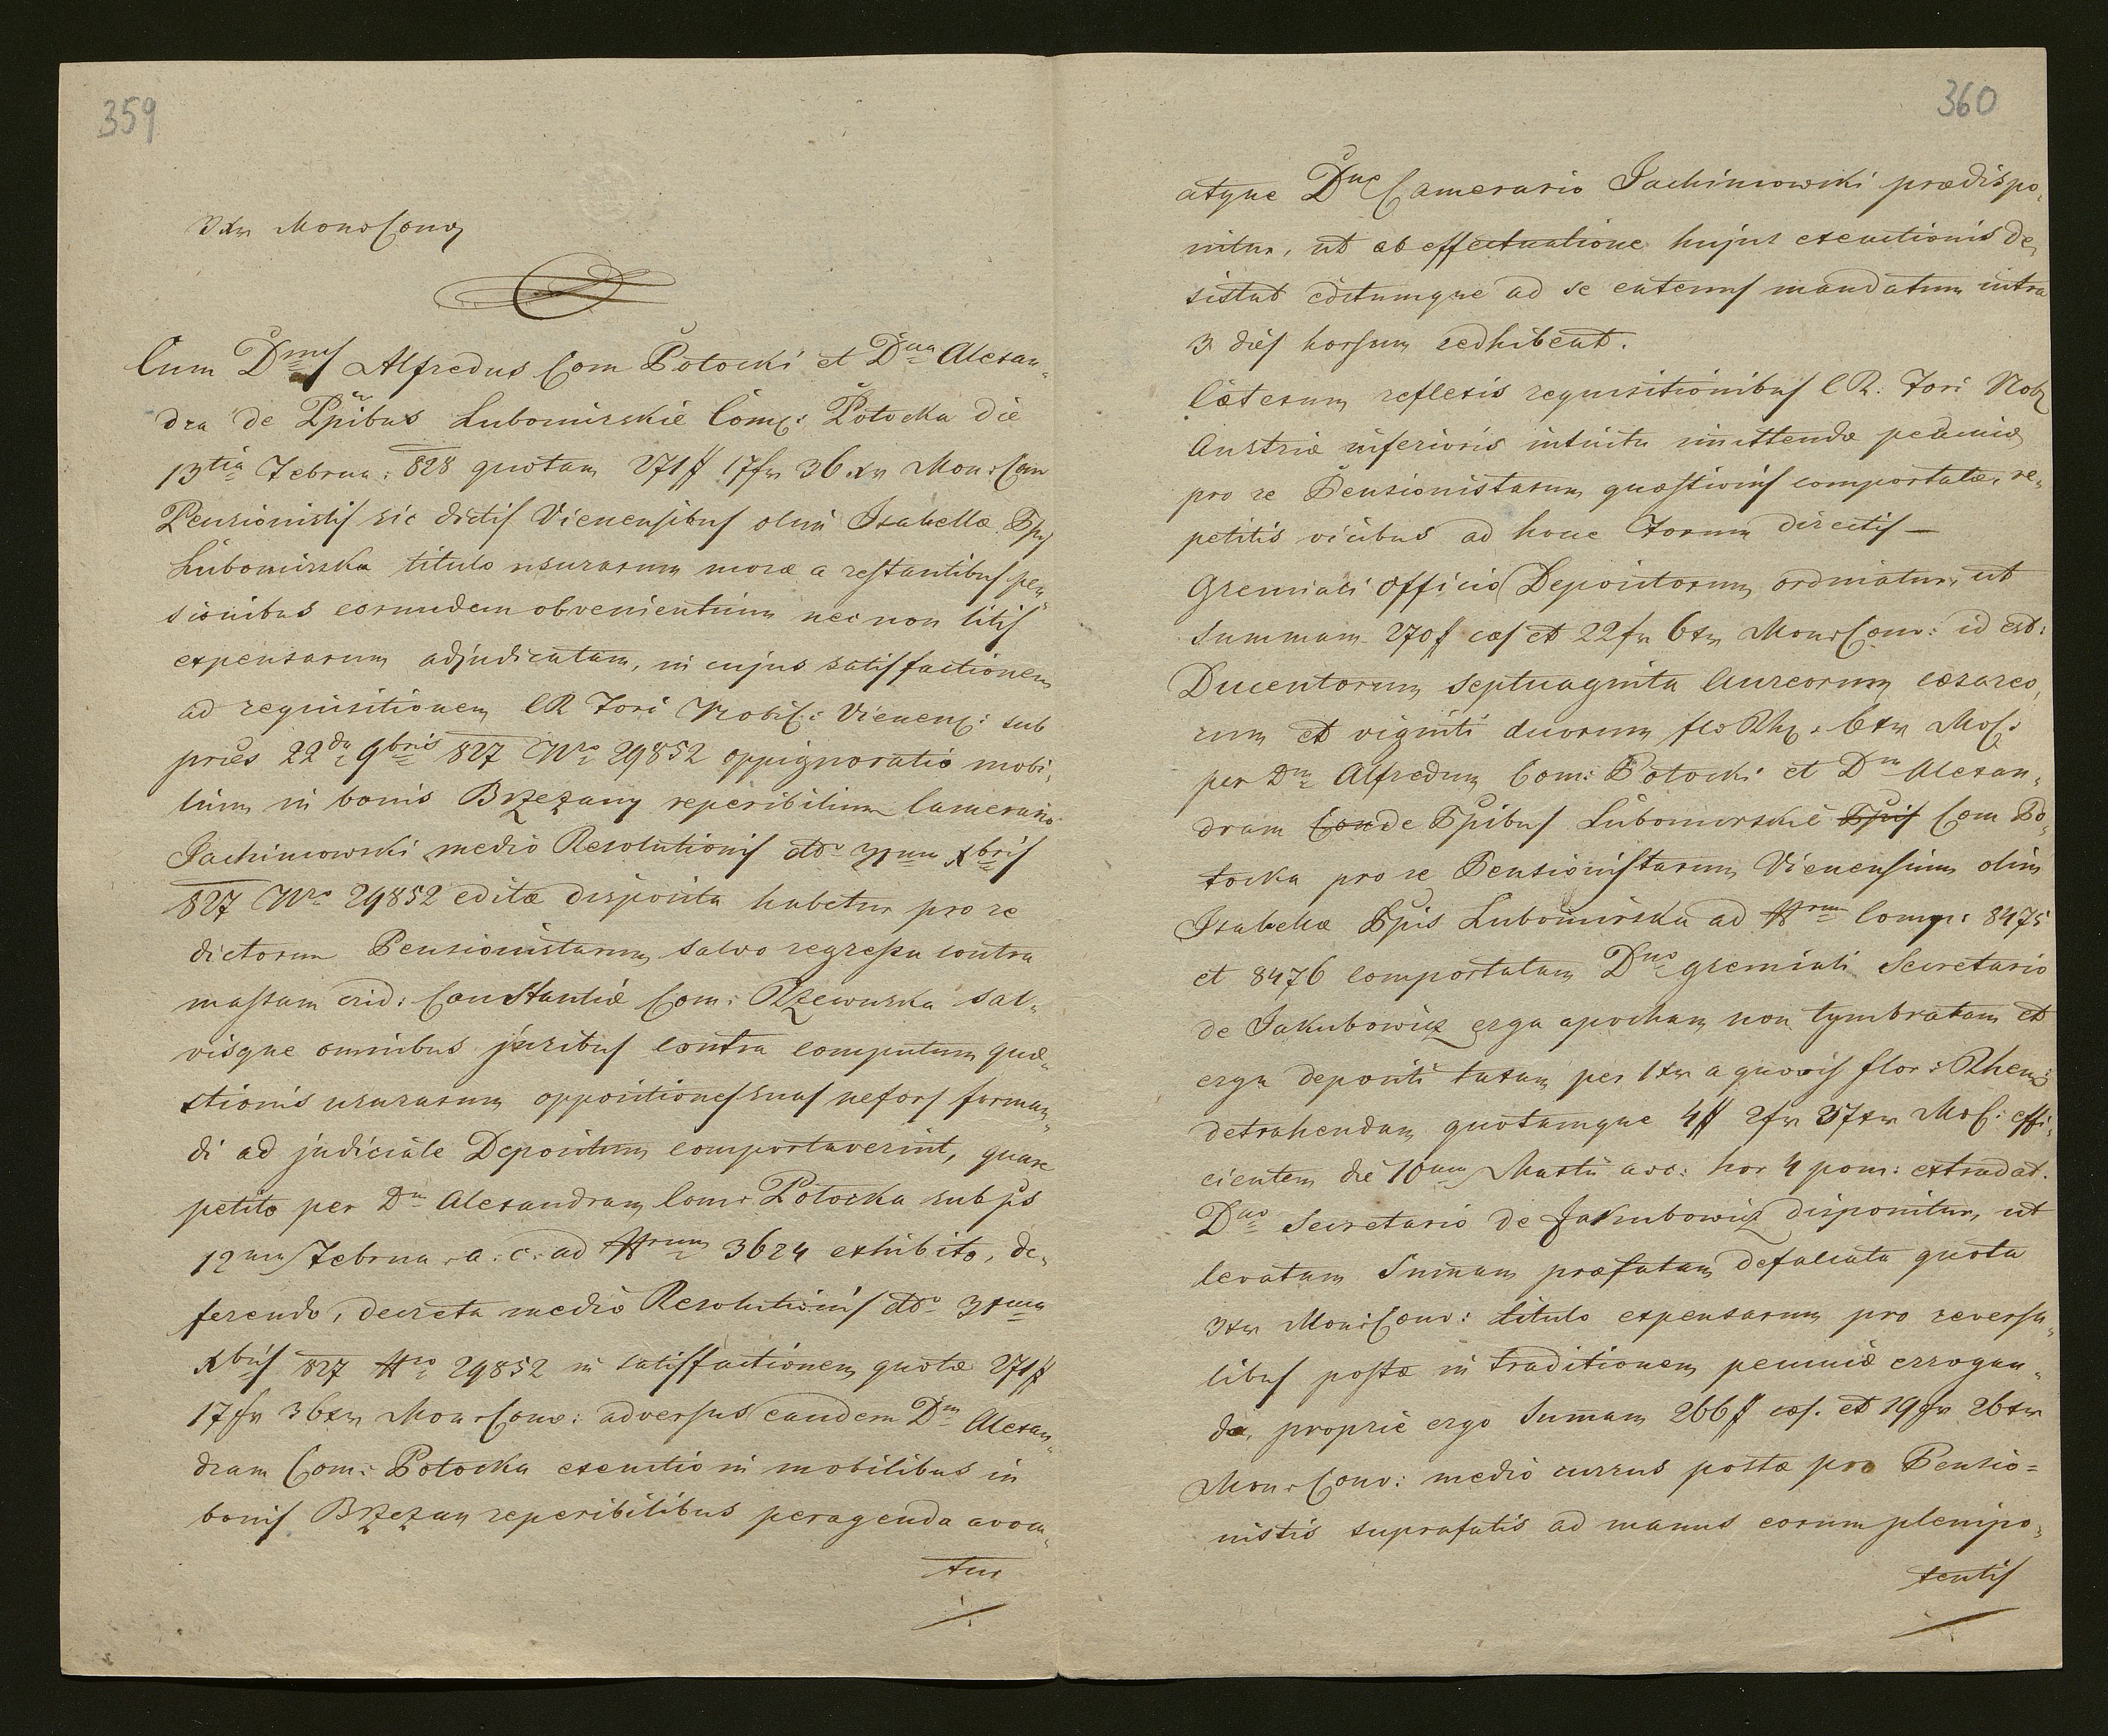 359
3xr Mon: Conv
Cum Dnus Alfredus Com Potocki et Dna Alexan„
dra de Ppibus Lubomirskie Com: Potocka die
13tia Februa: 828 quotam 271# 17fr 36xr Mon: Con
Pensionistis sic dictis Vienensibus olim Isabellæ Ppis
Lubomirska titulo usurarum moræ a restantibus pen„
sionibus eorumdem obvenientium nec non litis
expensarum adjudicatam, in cujus satisfactionem
ad requisitionem CR Fori Nobil: Vienen: sub
præs 22da 9bris 827 Nro 29852 oppignoratio mobi„
lium in bonis Brzezany reperibilium Camerario
Jachimowski medio Resolutionis ddo 31ma Xbris
827 Nro 29852 editæ disposita habetur pro re
dictorum Pensionistarum salvo regressu contra
massam crid: Constantiæ Com: Rzewuska sal„
visque omnibus juribus contra computum quæ„
stionis usurarum oppositiones suas nefors forman„
di ad judiciale Depositum comportaverint, quare
petito per Dm Alexandram Com: Potocka sub ps
12ma Februa: a: c: ad Nrum 3624 exhibito, de„
ferendo, decreta medio Resolutionis ddo 31ma
Xbris 827 Nro 29852 in satisfactionem quotæ 271#
17fr 36xr Mon: Conv: adversus eandem Dm Alexan„
dram Com: Potocka executio in mobilibus in
bonis Brzezany reperibilibus peragenda avoca„
tur
360
atque Dno Camerario Jachimowski prædispo„
nitur, ut ab effectuatione hujus executionis de„
sistat editumque ad se eatenus mandatum intra
3 dies horsum redhibeat.
Cæterum reflexis requisitionibus CR: Fori Nob:
Austriæ inferioris intuitu imittendæ pecuniæ
pro re Pensionistarum quæstionis comportatæ, re„
petitis vicibus ad hocce Forum directis —
Gremiali Officio Depositorum ordinatur, ut
Summam 270# cæs et 22fr 6xr Mon: Conv: id est:
Ducentorum Septuaginta Aureorum cæsareo„
rum et viginti duorum flo Rh: 6xr MC:
per Dm Alfredum Com: Potocki et Dm Alexan„
dram Com de Ppibus Lubomirskie Ppis Com Po„
tocka pro re Pensionistarum Vienensium olim
Isabellæ Ppis Lubomirska ad Nrum Comp: 8475
et 8476 comportatam Dno gremiali Secretario
de Jakubowicz erga apocham non tymbratam et
erga depositi taxam per 1xr a quovis flor: Rhen:
detrahendam quotamque 4# 2fr 37xr MC: effi„
cientem die 10ma Martii a: c: hor 4 pom: extradat.
Dno Secretario de Jakubowicz disponitur, ut
levatam Sumam præfatam defalcata quota
3xr Mon: Conv: titulo expensarum pro reversa„
libus postæ in traditionem pecuniæ erroganda„
da, proprie ergo Sumam 266# cæs. et 19fr 26xr
Mon: Conv: medio currus postæ pro Pensio=
nistis suprafatis ad manus eorum plenipo„
tentis